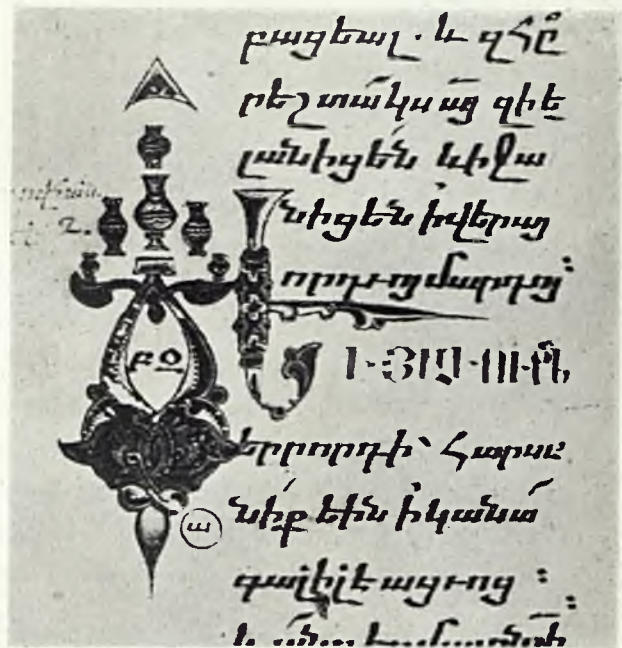 բացեալ. և զՀը
րեշտակս այ զի ե
լանիցեն և իջա
նիցեն ի վերայ
որդւոյ մարդոյ:
երրորդի՝ Հարսա
նիք էին ի կանա
գալիլէացւոց :